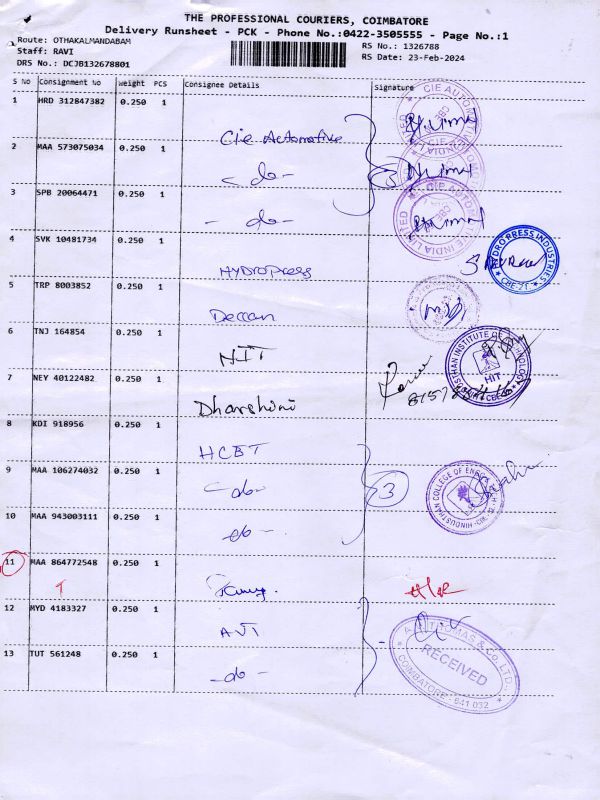 THE PROFESSIONAL COURIERS, COIMBATORE
Delivery Runsheet - PCK - Phone No.:0422-3505555 - Page No.:1
Route: OTHAKALMANDABAM
Staff: RAVI
DRS No.: DCJB132678801
RS No.: 1326788
RS Date: 23-Feb-2024
S No Consignment No Weight PCS Consignee Details Signature
1 HRD 312847382 0.250 1 Cie Automative
2 MAA 573075034 0.250 1 - do - 3
3 SPB 20064471 0.250 1 - do -
4 SVK 10481734 0.250 1 Hydropress
5 TRP 8003852 0.250 1 Deccan
6 TNJ 164854 0.250 1 HIT
7 NEY 40122482 0.250 1 Dharshini
8 KDI 918956 0.250 1 HCET
9 MAA 106274032 0.250 1 - do - 3
10 MAA 943003111 0.250 1 - do -
11 MAA 864772548 0.250 1
12 MYD 4183327 0.250 1 AVT
13 TUT 561248 0.250 1 - do -
CIE AUTOMOTIVE INDIA LIMITED
CIE AUTOMOTIVE INDIA LIMITED
CIE AUTOMOTIVE INDIA LIMITED
HYDRO PRESS INDUSTRIES
CBE-21
HIT
HINDUSTHAN COLLEGE OF
THOMAS & Co. LTD.,
RECEIVED
COIMBATORE - 641 032